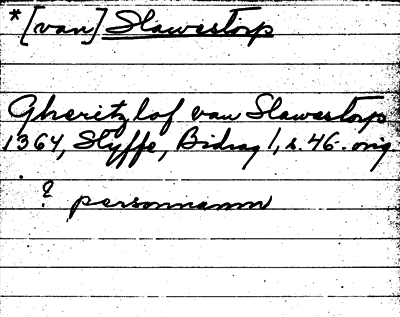 *[van] Slawestorp
Gheritzlof van Slawestorp
1364, Styffe, Bidrag 1, s. 46. orig.
? personnamn